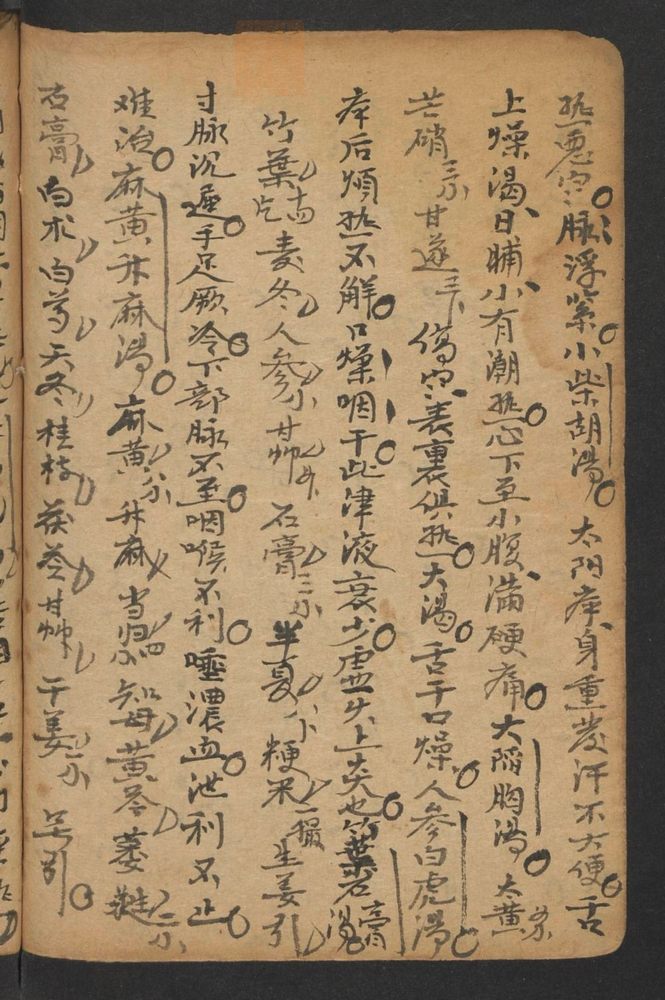 热恶寒脉浮紧小柴胡汤太阳病身重发汗不大便舌
上燥渴日晡小有潮热心下至小腹满硬痛大陷胸汤大黄
芒硝 甘遂 伤寒表裏俱热大渴舌干口燥人参白虎汤
病后烦热不解口燥咽干此津液衰少虚火上炎也竹葉石膏湯
竹葉 麦冬人参 石膏 半夏 粳米一撮生姜引
寸脉沉 手足厥冷下部脉不至咽喉不利唾濃血泄利不止
难治麻黄升麻湯麻黄 升麻 当归 知母黄芩萎蕤
石膏白术白芍天冬桂枝茯苓 干姜